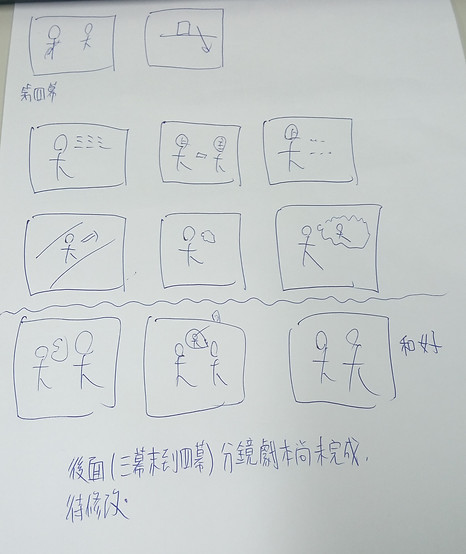 第四幕
和好
後面(三幕末到四幕)分鏡劇本尚未完成.
待修改.